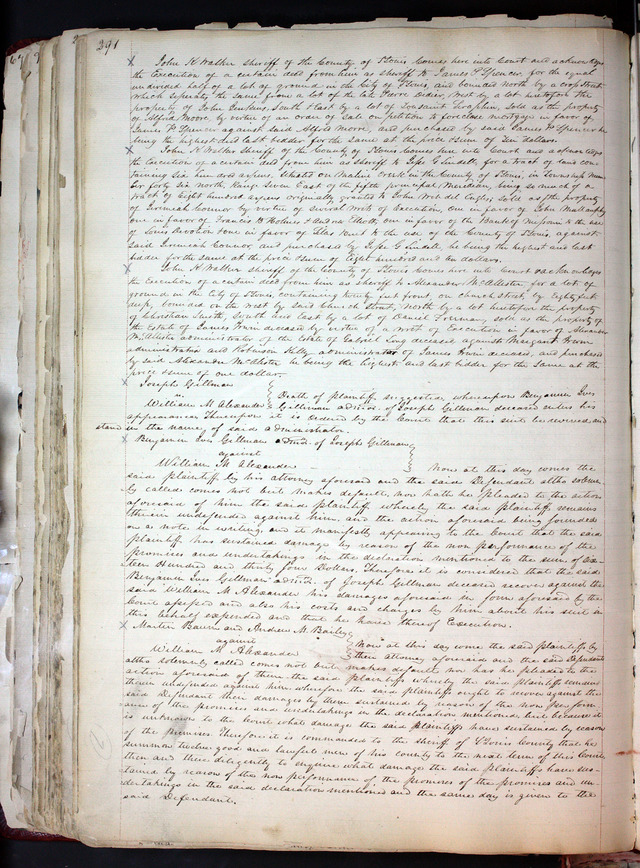 291
John K Walker sheriff of the County of St Louis Comes here into Court and acknowledges
the Execution of a certain deed from him as sheriff to James P Spencer for the equal
undivided half of a lot of ground in the City of St Louis, and bounded North by a cross Street
which seperates the same from a lot of the late Pierre Didier, West by a lot heretofore the
property of John Jenkins, South & East by a lot of Tousaint Seraphin, Sold as the property
of Alfred Moore, by virtue of an order of sale on petition to foreclose mortgage in favor of
James P Spencer against said Alfred Moore, and purchased by said James P Spencer he
being the highest and last bidder for the same at the price & sum of Ten dollars.
John K Walker sheriff of the County of St Louis Comes here into Court and acknowledges
the Execution of a certain deed from him as sheriff to Jesse G Lindell, for a tract of land con-
taining six hundred arpens, situated on Maline creek in the County of St Louis, in Township num-
ber forty six North, Range seven East of the fifth principal Meridian, being so much of a
tract of Eight hundred arpens originally granted to John &c sold as the property
of Jeremiah Connor by virtue of several writs of Execution, one in favor of John Mullanphy
one in favor of Francis B Holmes & Andrew Elliott, one in favor of the Bank of Missouri to the use
of Louis & one in favor of Silas Bent to the use of the County of St Louis, against
said Jeremiah Connor, and purchased by Jesse G Lindell, he being the highest and last
bidder for the same at the price & sum of Eight hundred and ten dollars.
John K Walker sheriff of the County of St Louis Comes here into Court & acknowledges
the Execution of a certain deed from him as sheriff to Alexander McAllister for a lot of
ground in the City of St Louis, containing twenty feet front on Church Street, by Eighty feet
deep, bounded on the West by said Church Street, North by a lot heretofore the property
of Christian Smith, South and East by a lot of Daniel Freeman, sold as the property of
the Estate of James Irwin deceased by virtue of a writ of Execution in favor of Alexander
McAllister administrator of the Estate of Gabriel Long deceased against Margaret Irwin
administratrix and Robinson Kelly administrator of James Irwin deceased, and purchased
by said Alexander McAllister he being the highest and last bidder for the same at the
price & sum of one dollar.
Joseph Gillman
vs.
William M Alexander
Death of plaintiff suggested whereupon Benjamin Ives
Gillman admor. of Joseph Gillman deceased enters his
appearance Thereupon it is ordered by the Court that this suit be revived and
stand in the name of said administrator.
Benjamin Ives Gillman admor. of Joseph Gillman
against
William M Alexander
Now at this day comes the
said plaintiff by his attorney aforesaid and the said Defendant altho solemn-
ly called comes not but makes default, nor hath he pleaded to the action
aforesaid of him the said plaintiff whereby the said plaintiff remains
therein undefended against him, and the action aforesaid being founded
on a note in writing, and it manifestly appearing to the Court that the said
plaintiff has sustained damage by reason of the non performance of the
promises and undertakings in the declaration mentioned to the sum of
Hundred and thirty four Dollars. Therefore it is considered that the said
Benjamin Ives Gillman admor. of Joseph Gillman deceased recover against the
said William M Alexander his damages aforesaid in form aforesaid by the
Court assessed and also his costs and charges by him about his suit in
this behalf expended and that he have thereof Execution.
Martin Baum and Andrew M. Bailey
against
William M. Alexander
Now at this day come the said plaintiffs by
their attorney aforesaid and the said Defendant
altho solemnly called comes not but makes default, nor has he pleaded to the
action aforesaid of them the said plaintiffs whereby the said plaintiffs remain
therein undefended against him, wherefore the said plaintiffs ought to recover against the
said Defendant their damages by them sustained by reason of the non perform-
ance of the promises and undertakings in the declaration mentioned, but because it
is unknown to the Court what damage the said plaintiffs have sustained by reason
of the premises Therefore it is commanded to the sheriff of St Louis County that he
summon twelve good and lawful men of his county to the next term of this Court
then and there diligently to enquire what damage the said plaintiffs have sus-
tained by reason of the non performance of the promises of the promises and un-
dertakings in the said declaration mentioned and the same day is given to the
said Defendant.